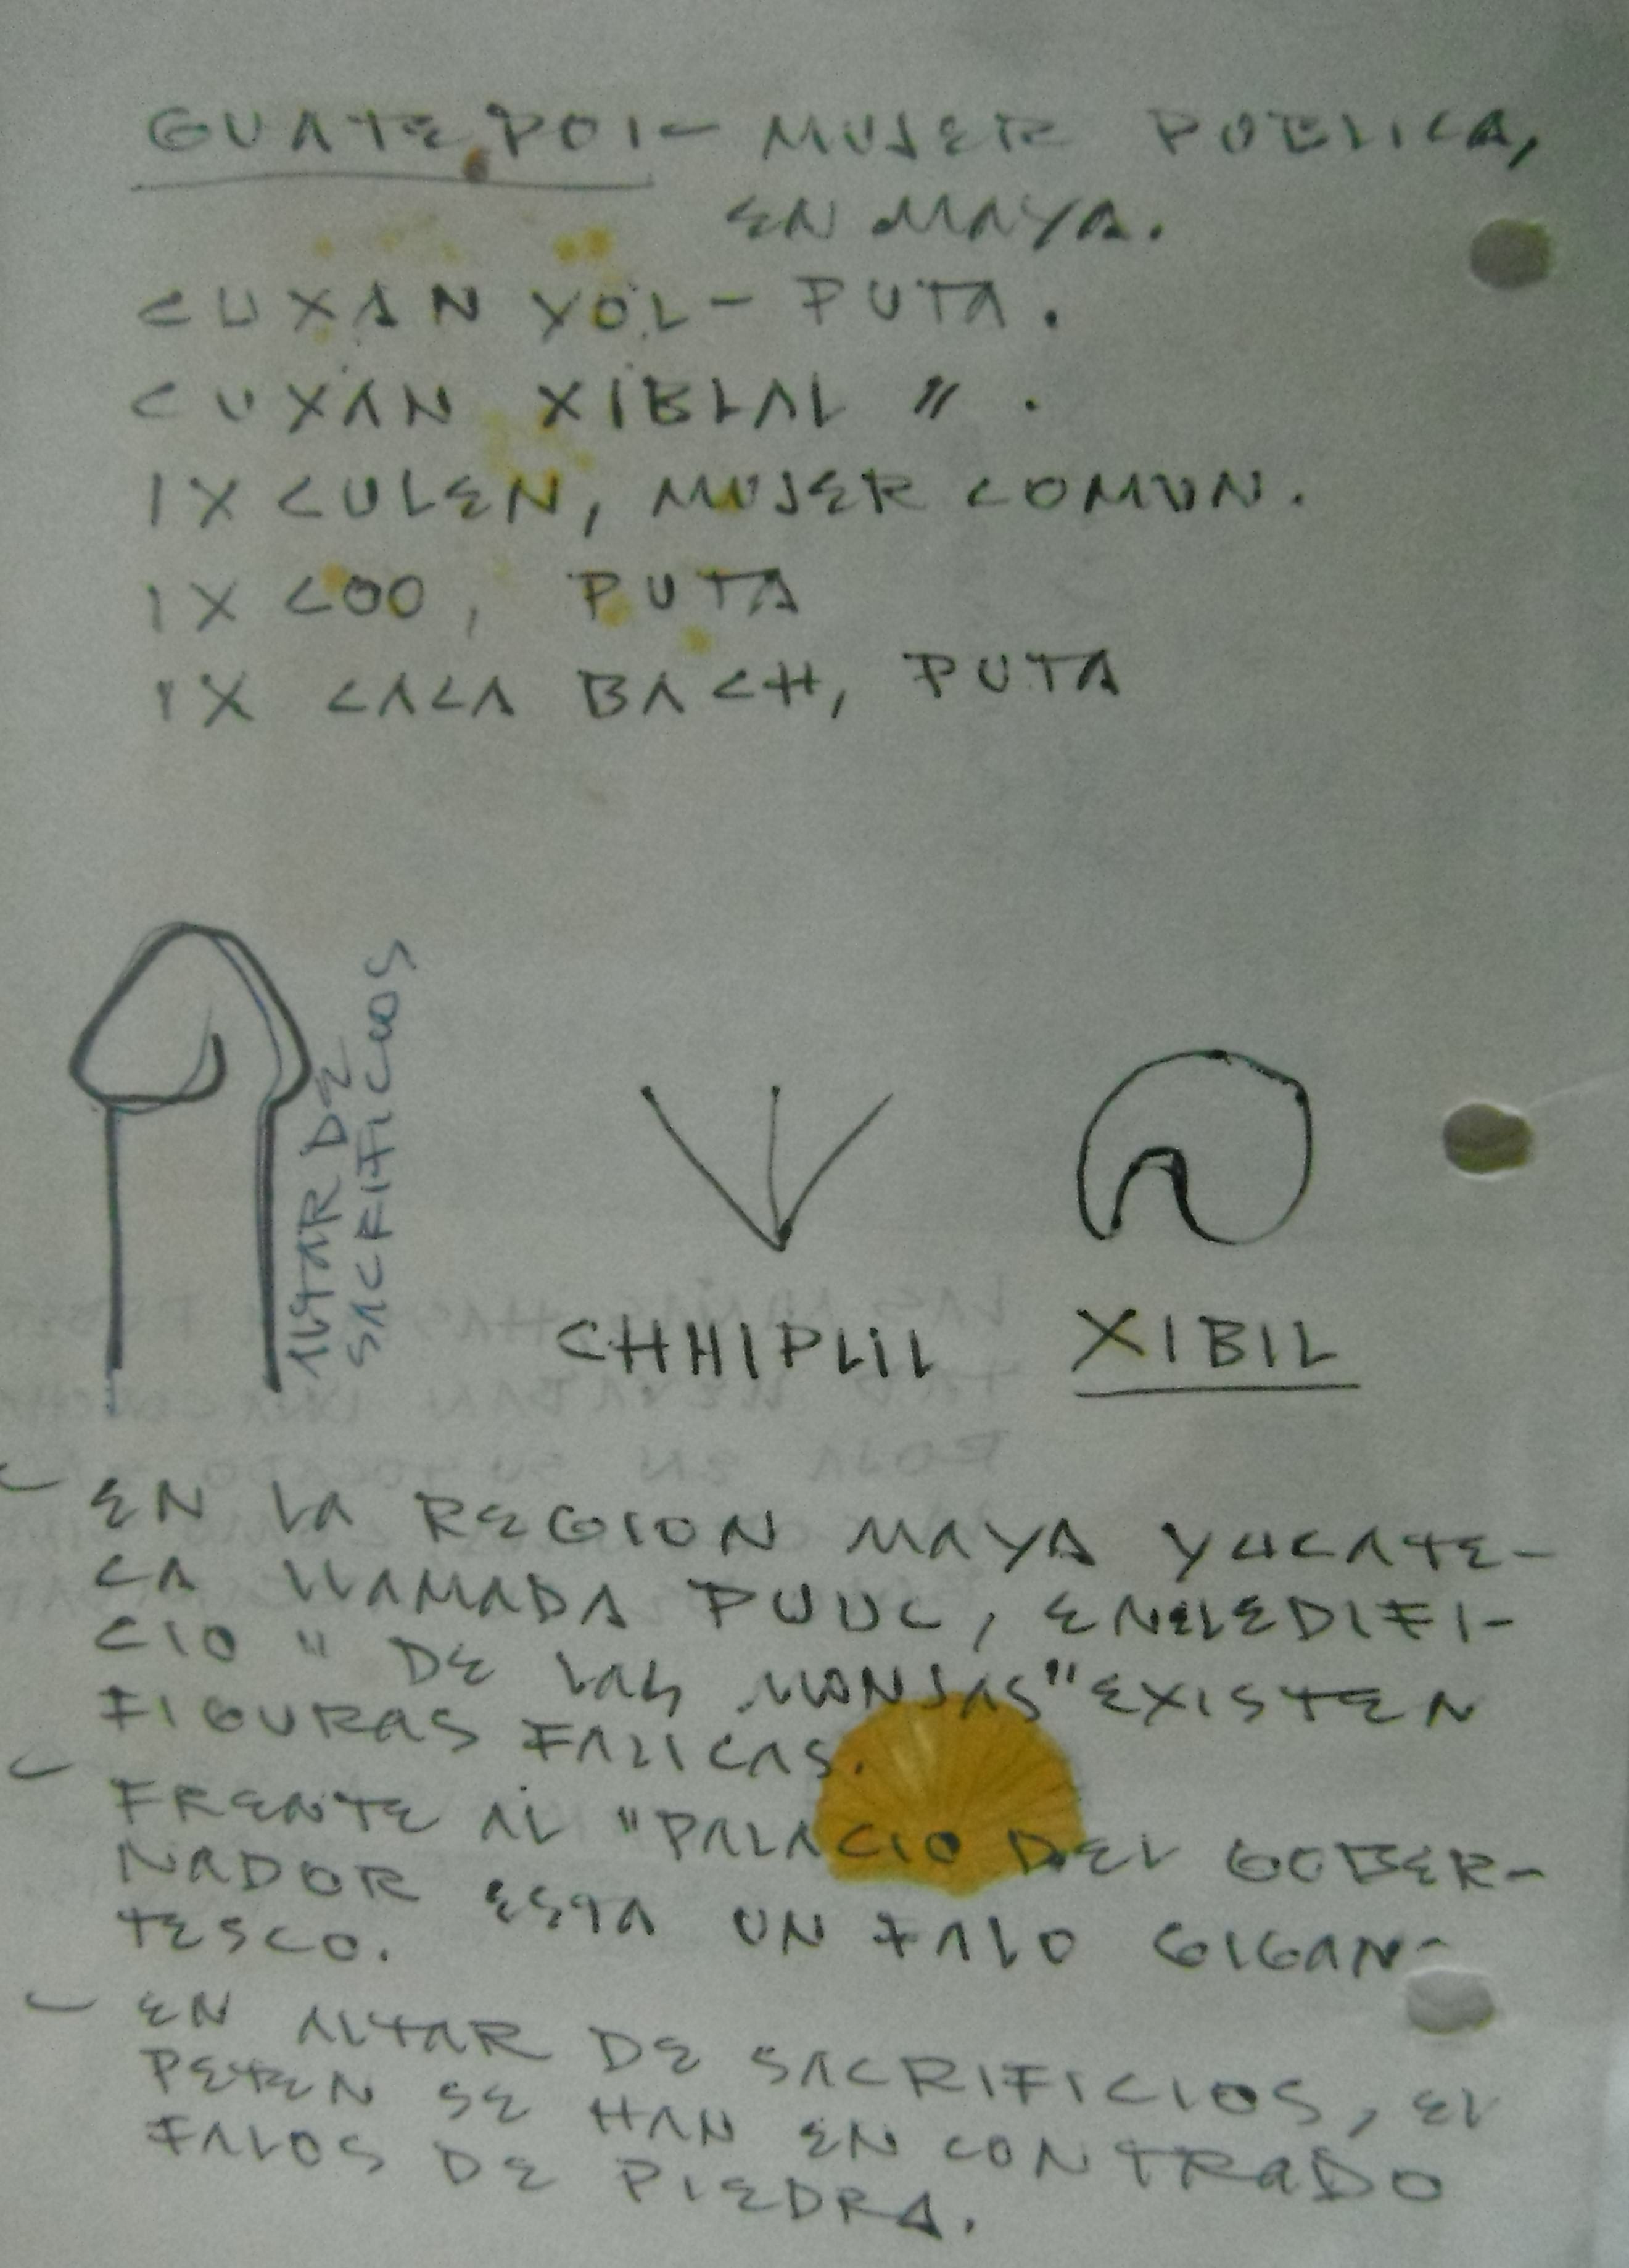 GUATE POI - MUJER PUBLICA,
EN MAYA.
CUXAN YOL - PUTA.
CUXAN XIBLAL " .
IX CULEN, MUJER COMUN.
IX COO, PUTA
IX CACA BACH, PUTA
ALTAR DE
SACRIFICIOS
CHHIPLIL
XIBIL
- EN LA REGION MAYA YUCATE-
CA LLAMADA PUUC, EN EL EDIFI-
CIO " DE LAS MONJAS" EXISTEN
FIGURAS FALICAS.
- FRENTE AL "PALACIO DEL GOBER-
NADOR ESTA UN FALO GIGAN-
TESCO.
- EN ALTAR DE SACRIFICIOS, EL
PETEN SE HAN ENCONTRADO
FALOS DE PIEDRA.